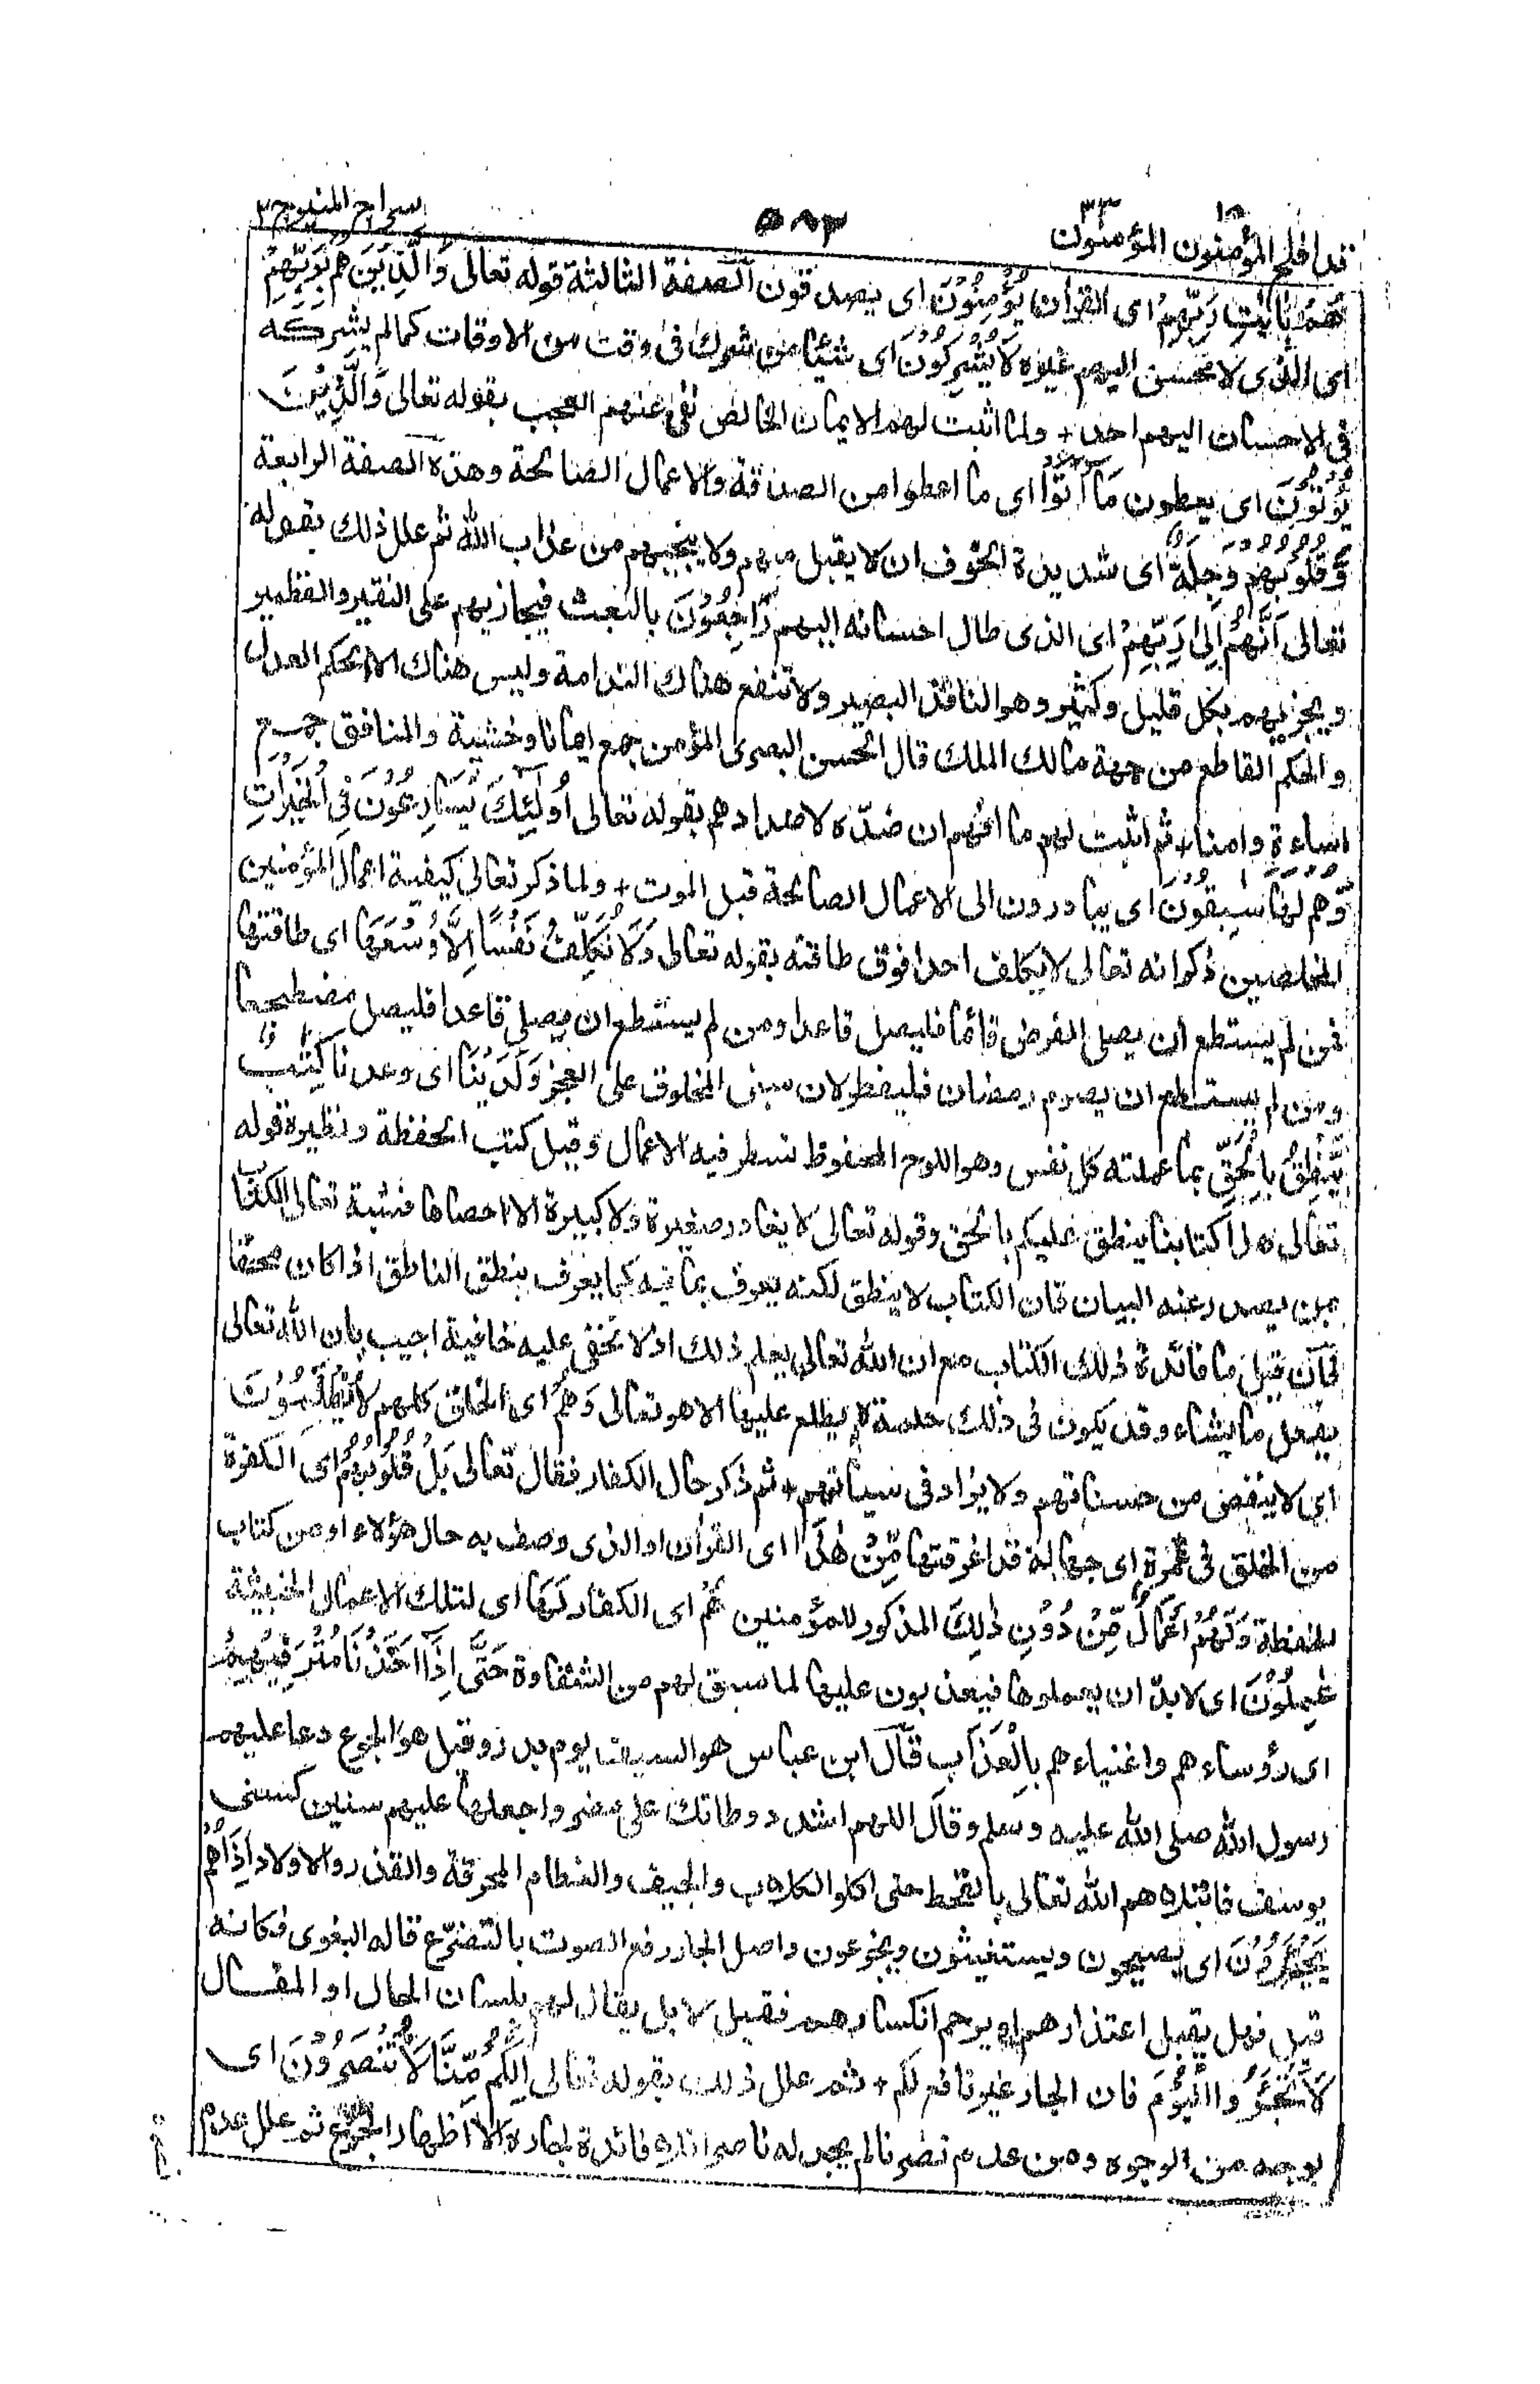 قد افلح ١٨ المؤمنون المؤمنون ٢٣ ٥٨٢ سراج المنير ج ٢
هُمْ بِاٰيٰتِ رَبِّهِمْ اى القران يُؤْمِنُوْنَ اى يصدقون الصفة الثالثة قوله تعالى وَالَّذِيْنَ هم بِرَبِّهِمْ
اى الذى لا محسن اليهم غيره لَا يُشْرِكُوْنَ اى شيئا من شرك فى وقت من الاوقات كما لم يشركه
فى الاحسان اليهم احد + ولما اثبت لهم الايمان الخالص نفى عنهم العجب بقوله تعالى وَالَّذِيْنَ
يُؤْتُوْنَ اى يعطون مَا اٰتَوْا اى ما اعطوا من الصدقة والاعمال الصالحة وهذه الصفة الرابعة
وَّقُلُوْبُهُمْ وَجِلَةٌ اى شديدة الخوف ان لا يقبل منهم ولا ينجيهم من عذاب الله ثم علل ذلك بقوله
تعالى اَنَّهُمْ اِلٰى رَبِّهِمْ اى الذى طال احسانه اليهم رَاجِعُوْنَ بالبعث فيجازيهم على النقير والقطمير
ويجزيهم بكل قليل وكثير وهو الناقد البصير ولا تنفع هناك الندامة وليس هناك الا الحكم العدل
والحكم القاطع من جهة مالك الملك قال الحسن البصرى المؤمن جمع ايمانا وخشية والمنافق جمع
اساءة وامنا + ثم اثبت لهم ما افهم ان ضدّه لاضدادهم بقوله تعالى اُولٰٓئِكَ يُسَارِعُوْنَ فِى الْخَيْرَاتِ
وَهم لها سٰبِقُوْنَ اى يبادرون الى الاعمال الصالحة قبل الموت + ولما ذكر تعالى كيفية اعمال المؤمنين
المخلصين ذكر انه تعالى لا يكلف احدا فوق طاقته بقوله تعالى وَلَا نُكَلِّفُ نَفْسًا اِلَّا وُسْعَهَا اى طاقتها
فمن لم يستطع ان يصلى الفرض قائما فليصل قاعدا ومن لم يستطع ان يصلى قاعدا فليصل مضطجعا
ومن لم يستطع ان يصوم رمضان فليفطر لان مبنى المخلوق على العجز وَلَدَيْنَا اى وعندنا كِتٰبٌ
يَّنْطِقُ بِالْحَقِّ بما عملته كل نفس وهو اللوح المحفوظ تسطر فيه الاعمال وقيل كتب الحفظة ونظيره قوله
تعالى هذا كتابنا ينطق عليكم بالحق وقوله تعالى لا يغادر صغيرة ولا كبيرة الا احصاها فشبه تعالى الكتاب
بمن يصدر عنه البيان فان الكتاب لا ينطق لكنه يعرف بما فيه كما يعرف بنطق الناطق اذا كان محقا
فان قيل ما فائدة ذلك الكتاب مع ان الله تعالى يعلم ذلك اذ لا تخفى عليه خافية اجيب بان الله تعالى
يفعل ما يشاء وقد يكون فى ذلك حكمة لا يطلع عليها الا هو تعالى وَهُمْ اى الخلق كلهم لَا يُظْلَمُوْنَ
اى لا ينقص من حسناتهم ولا يزاد فى سيئاتهم + ثم ذكر حال الكفار فقال تعالى بَلْ قُلُوْبُهُمْ اى الكفرة
من الخلق فى غَمْرَةٍ اى جهالة قد اغرقتها مِّنْ هٰذَا اى القرآن او الذى وصف به حال هؤلاء او من كتاب
الحفظة وَلَهُمْ اَعْمَالٌ مِّنْ دُوْنِ ذٰلِكَ المذكور للمؤمنين هُمْ اى الكفار لَهَا اى لتلك الاعمال الخبيثة
عٰمِلُوْنَ اى لا بدّ ان يعملوها فيعذبون عليها لما سبق لهم من الشقاوة حَتّٰى اِذَا اَخَذْنَا مُتْرَفِيْهِمْ
اى رؤساءهم واغنياءهم بِالْعَذَابِ قال ابن عباس هو السيف يوم بدر وقيل هو الجوع دعا عليهم
رسول الله صلى الله عليه وسلم وقال اللهم اشدد وطاتك على مضر واجعلها عليهم سنين كسنى
يوسف فابتلاهم الله تعالى بالقحط حتى اكلوا الكلاب والجيف والعظام المحرقة والقذر والاولاد اِذَا هُمْ
يَجْئَرُوْنَ اى يصيحون ويستغيثون ويجزعون واصل الجار رفع الصوت بالتضرّع قاله البغوى فكانه
قيل فهل يقبل اعتذارهم او يرحم انكسارهم فقيل لا بل يقال لهم بلسان الحال او المقال
لَا تَجْئَرُوا الْيَوْمَ فان الجار غير نافع لكم + ثم علل ذلك بقوله تعالى اِنَّكُمْ مِّنَّا لَا تُنْصَرُوْنَ اى
بوجه من الوجوه ومن عدم نصرنا لم يجد له ناصرا فلا فائدة لجاره الا اظهار الجزع ثم علل عدم